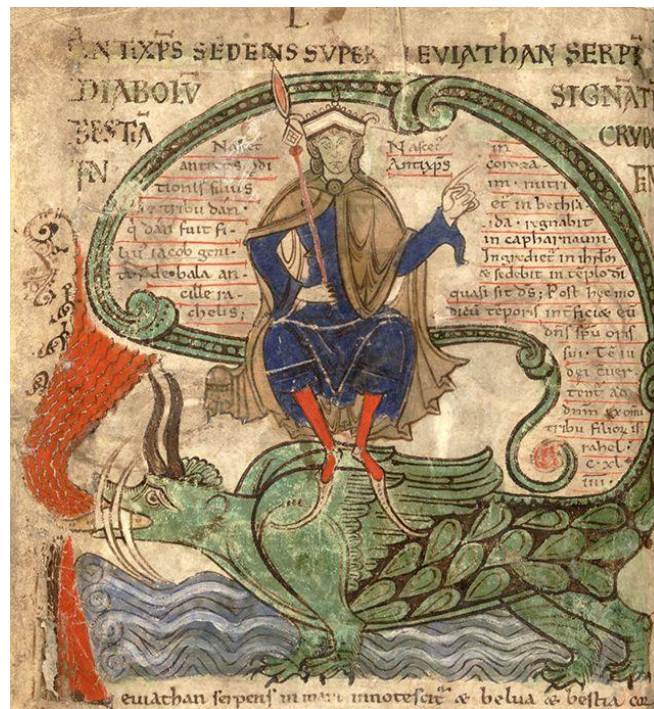 ANTIXP̄S SEDENS SUPER LEVIATHAN SERPE
DIABOLŪ SIGNAT
BESTIĀ CRUDE
IN
Nascet̄
antixp̄s p̄di
tionis filius
de tribu dan.
q̄ dan fuit fi-
lius iacob geni-
de bala an-
cille ra-
chelis;
Nascet̄ in
Antixp̄s coroza-
im. nutri
et̄ in bethsa
ida. regnabit
in capharnaum
Ingrediet̄ in ihrl̄m
& sedebit in tēplo dī
quasi sit ds̄; Post hec mo
dicū tēporis int̄ficiet eū
dn̄s sp̄u oris
sui. Tc̄ iu
dei cūer
tent̄ ad
dn̄m ex om̄i
tribu filioꝝ is
rahel.
c. xl
iiii.
euiathan serpens in mari innotescit̄ & belua & bestia cor